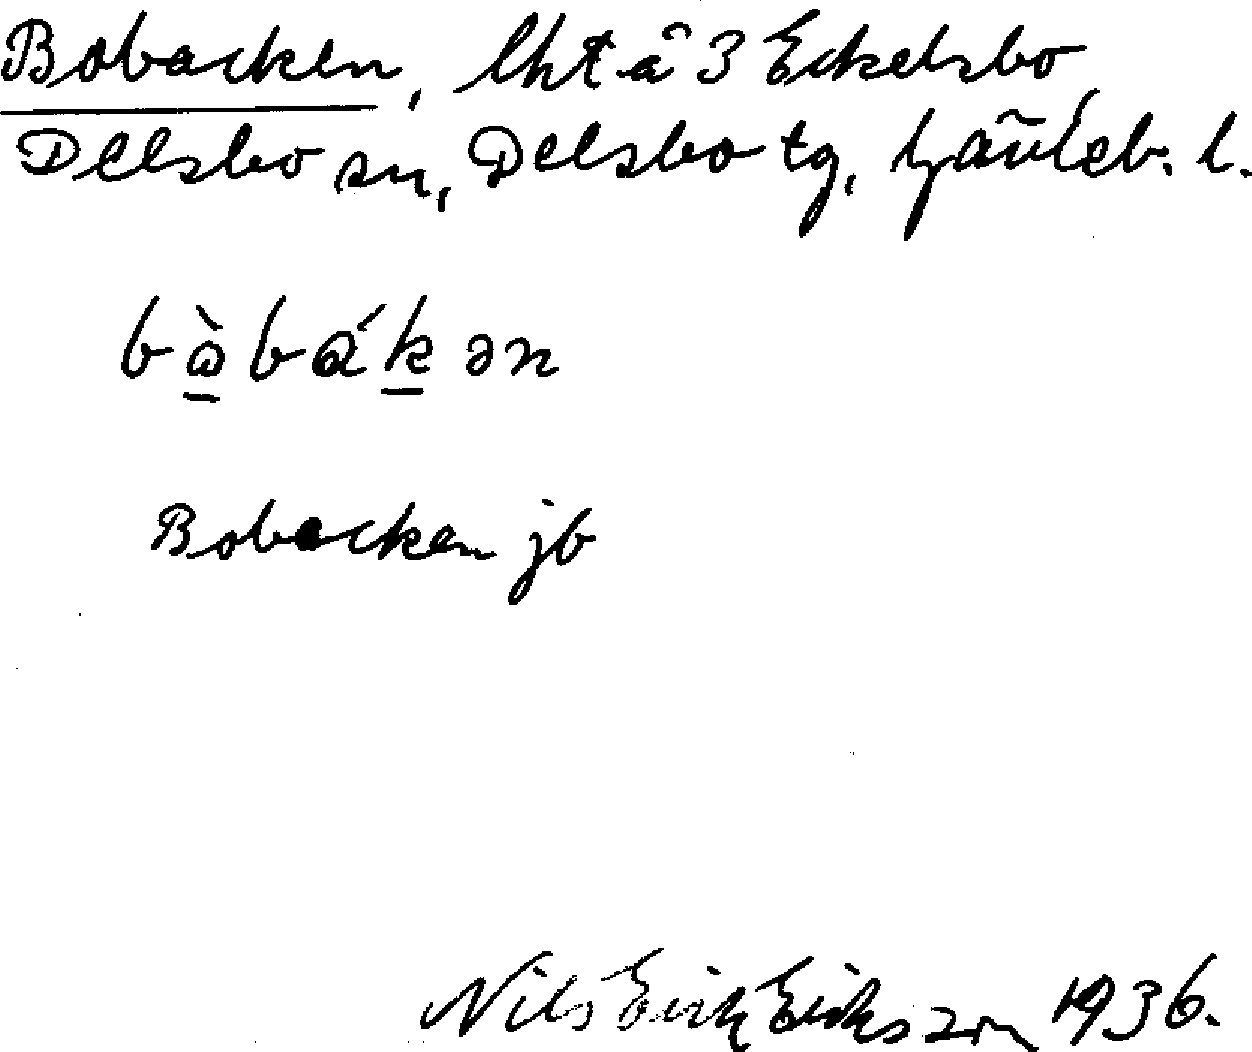 Bobacken, lht å 3 Eckelsbo
Delsbo sn, Delsbo tg, Gävleb. l.
bὼ̱báḵən
Bobacken jb
Nils Erik Eriksson 1936.